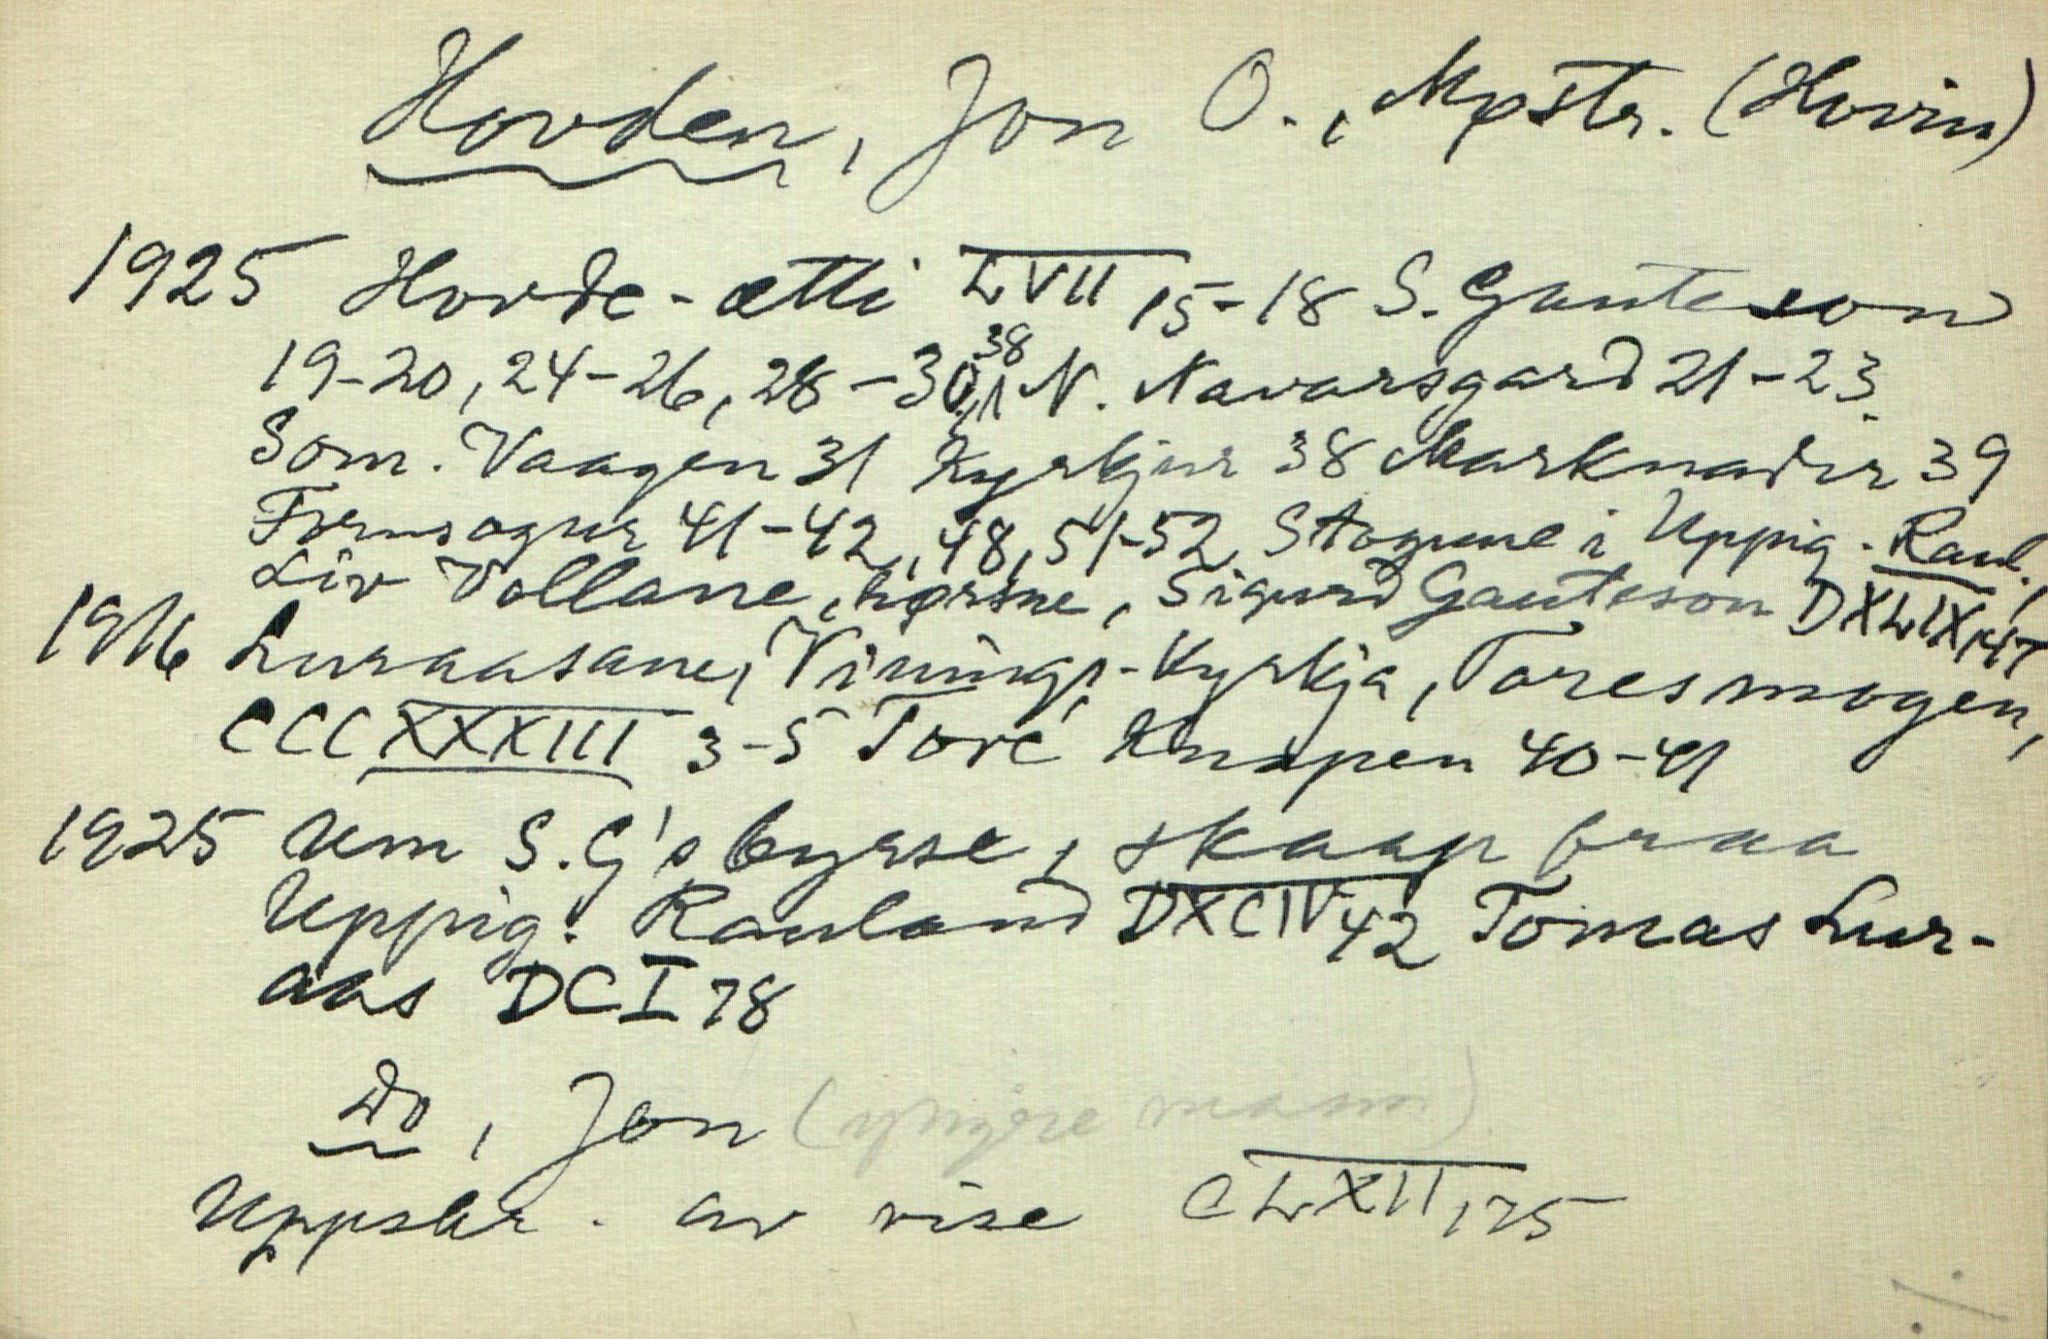 Hovden, Jon O., Møstr. (Hovin)
1925 Hovde-ætti LVII 15-18 S. Gauteson
19-20, 24-26, 28-30, 38 N. Navarsgard 21-23.
Som. Vaagen 31 Kyrkjur 38 Marknadir 39
Fornsogur 41-42, 48, 51-52, Stogune i Uppig. Raul.,
Liv Vollane, hørsne, Sigurd Gauteson DXLIX, 47
1916 Luraasane, Vinings-Kyrkja, Toresmogen,
CCCXXXIII 3-5 Tore Knapen 40-41
1925 Um S. G's byrse, skaap fraa
Uppig. Rauland DXCIV 42 Tomas Lur-
aas DCI 78
Do, Jon (yngre mann)
Uppskr. av vise CLXII, 75